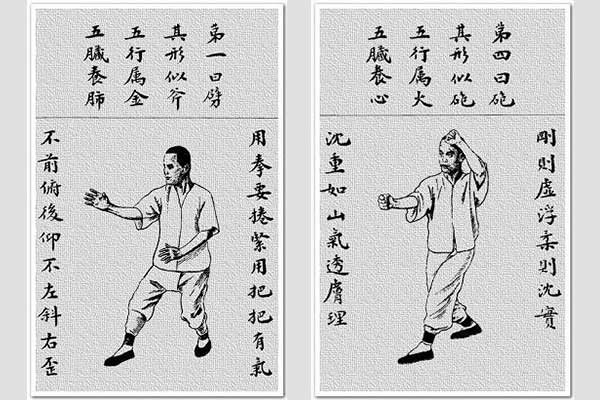 第一曰劈
其形似斧
五行属金
五臟養肺
用拳要捲緊用把把有氣
不前俯後仰不左斜右歪
第四曰砲
其形似砲
五行属火
五臟養心
剛則虛浮柔則沈實
沈重如山氣透膚理